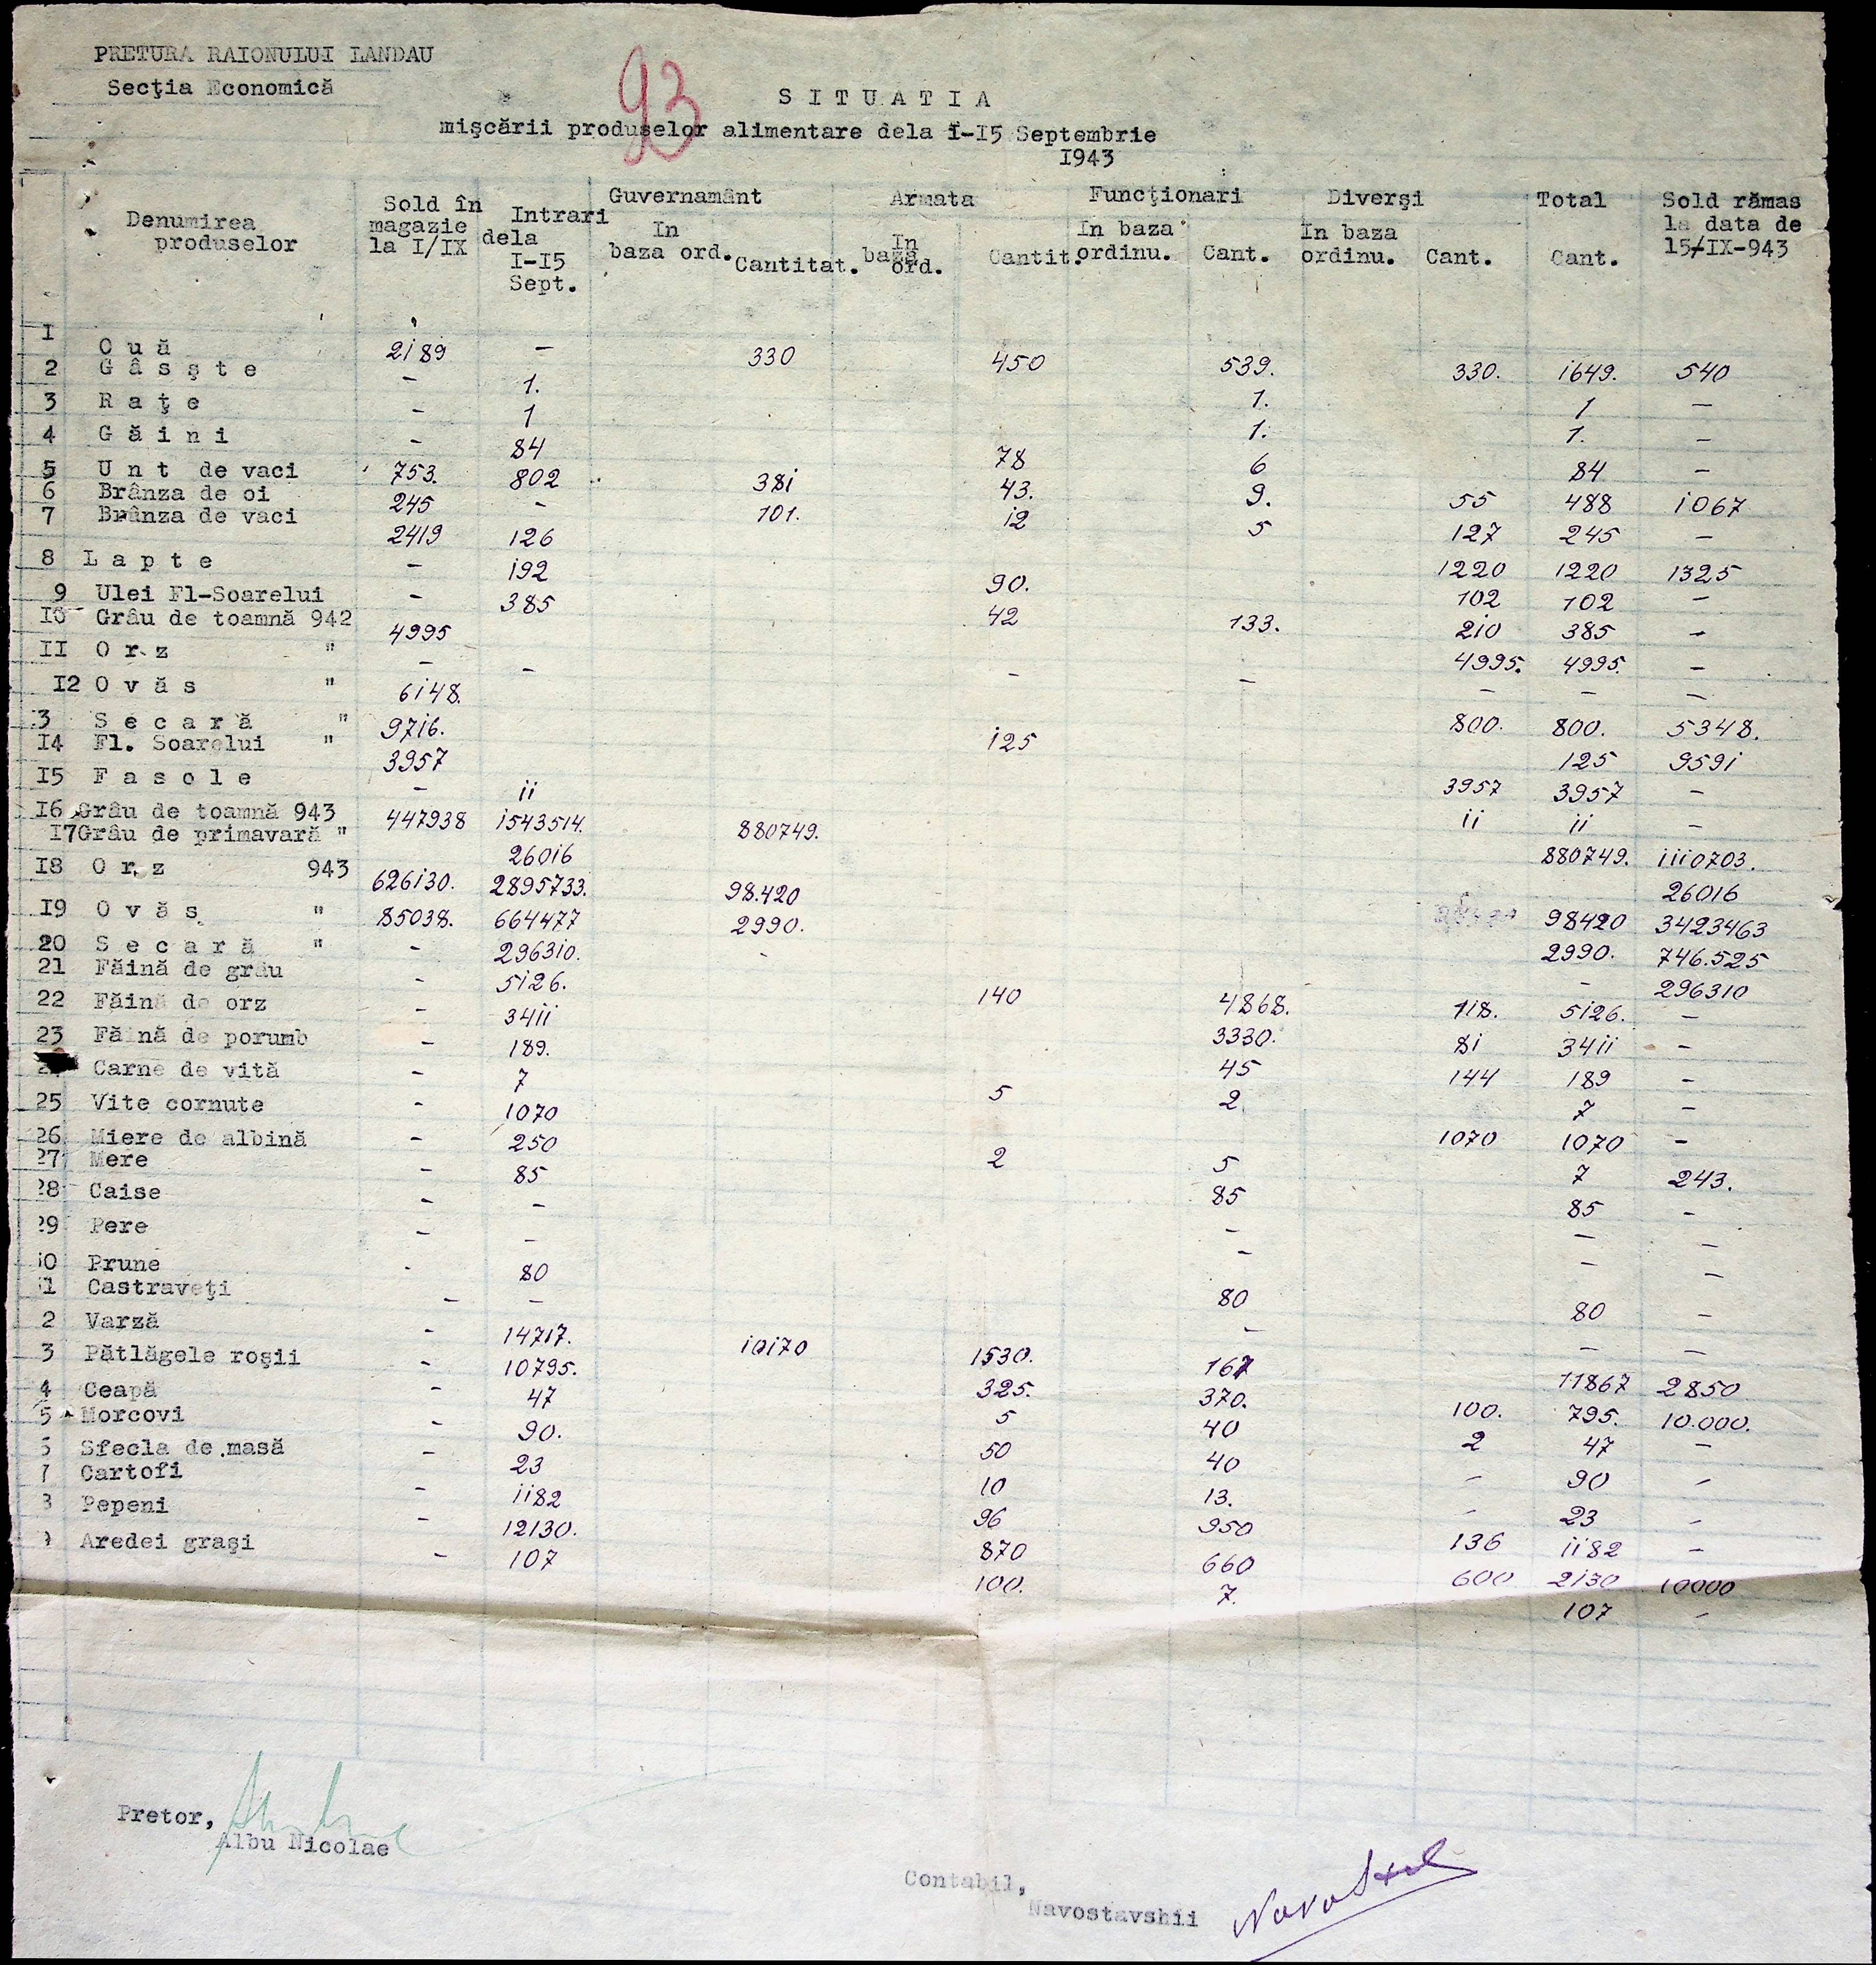 PRETURA RAIONULUI LANDAU
Secţia Economică
93
S I T U A T I A
mişcării produselor alimentare dela I-I5 Septembrie
I943
Denumirea produselor | Sold în magazie la I/IX | Intrari dela I-I5 Sept. | Guvernamânt In baza ord. | Cantitat. | Armata In baza ord. | Cantit. | Funcţionari In baza ordinu. | Cant. | Diverşi In baza ordinu. | Cant. | Total Cant. | Sold rămas la data de 15/IX-943
I O u ă 2189 – 330 450 539. 330. 1649. 540
2 G â s ş t e – 1. 1. 1 –
3 R a ţ e – 1 1. 1. –
4 G ă i n i – 84 78 6 84 –
5 U n t de vaci 753. 802 381 43. 9. 55 488 1067
6 Brânza de oi 245 – 101. 12 5 127 245 –
7 Brânza de vaci 2419 126 1220 1220 1325
8 L a p t e – 192 90. 102 102 –
9 Ulei Fl-Soarelui – 385 42 133. 210 385 –
I0 Grâu de toamnă 942 4995 4995. 4995. –
II O r z " – – – – – – –
I2 O v ă s " 6148. 800. 800. 5348.
3 S e c a r ă " 9716. 125 125 9591
I4 Fl. Soarelui " 3957 3957 3957 –
I5 F a s o l e – 11 11 11 –
I6 Grâu de toamnă 943 447938 1543514. 880749. 880749. 1110703.
I7 Grâu de primavară " 26016 26016
I8 O r z 943 626130. 2895733. 98.420 98420 3423463
I9 O v ă s " 85038. 664477 2990. 2990. 746.525
20 S e c a r ă " – 296310. – – 296310
21 Făină de grâu – 5126. 140 4868. 118. 5126. –
22 Făină de orz – 3411 3330. 81 3411 –
23 Făină de porumb – 189. 45 144 189 –
Carne de vită – 7 5 2 7 –
25 Vite cornute – 1070 1070 1070 –
26 Miere de albină – 250 2 5 7 243.
27 Mere – 85 85 85 –
28 Caise – – – – –
29 Pere – – – – –
0 Prune - 80 80 80 –
1 Castraveţi – – – – –
2 Varză – 14717. 10170 1530. 167 11867 2850
3 Pătlăgele roşii – 10795. 325. 370. 100. 795. 10.000.
4 Ceapă – 47 5 40 2 47 –
5 Morcovi – 90. 50 40 – 90 –
Sfecla de masă – 23 10 13. – 23 –
7 Cartofi – 1182 96 950 136 1182 –
8 Pepeni – 12130. 870 660 600 2130 10000
Aredei graşi – 107 100. 7. 107 –
Pretor,
Albu Nicolae
Contabil,
Navostavshii